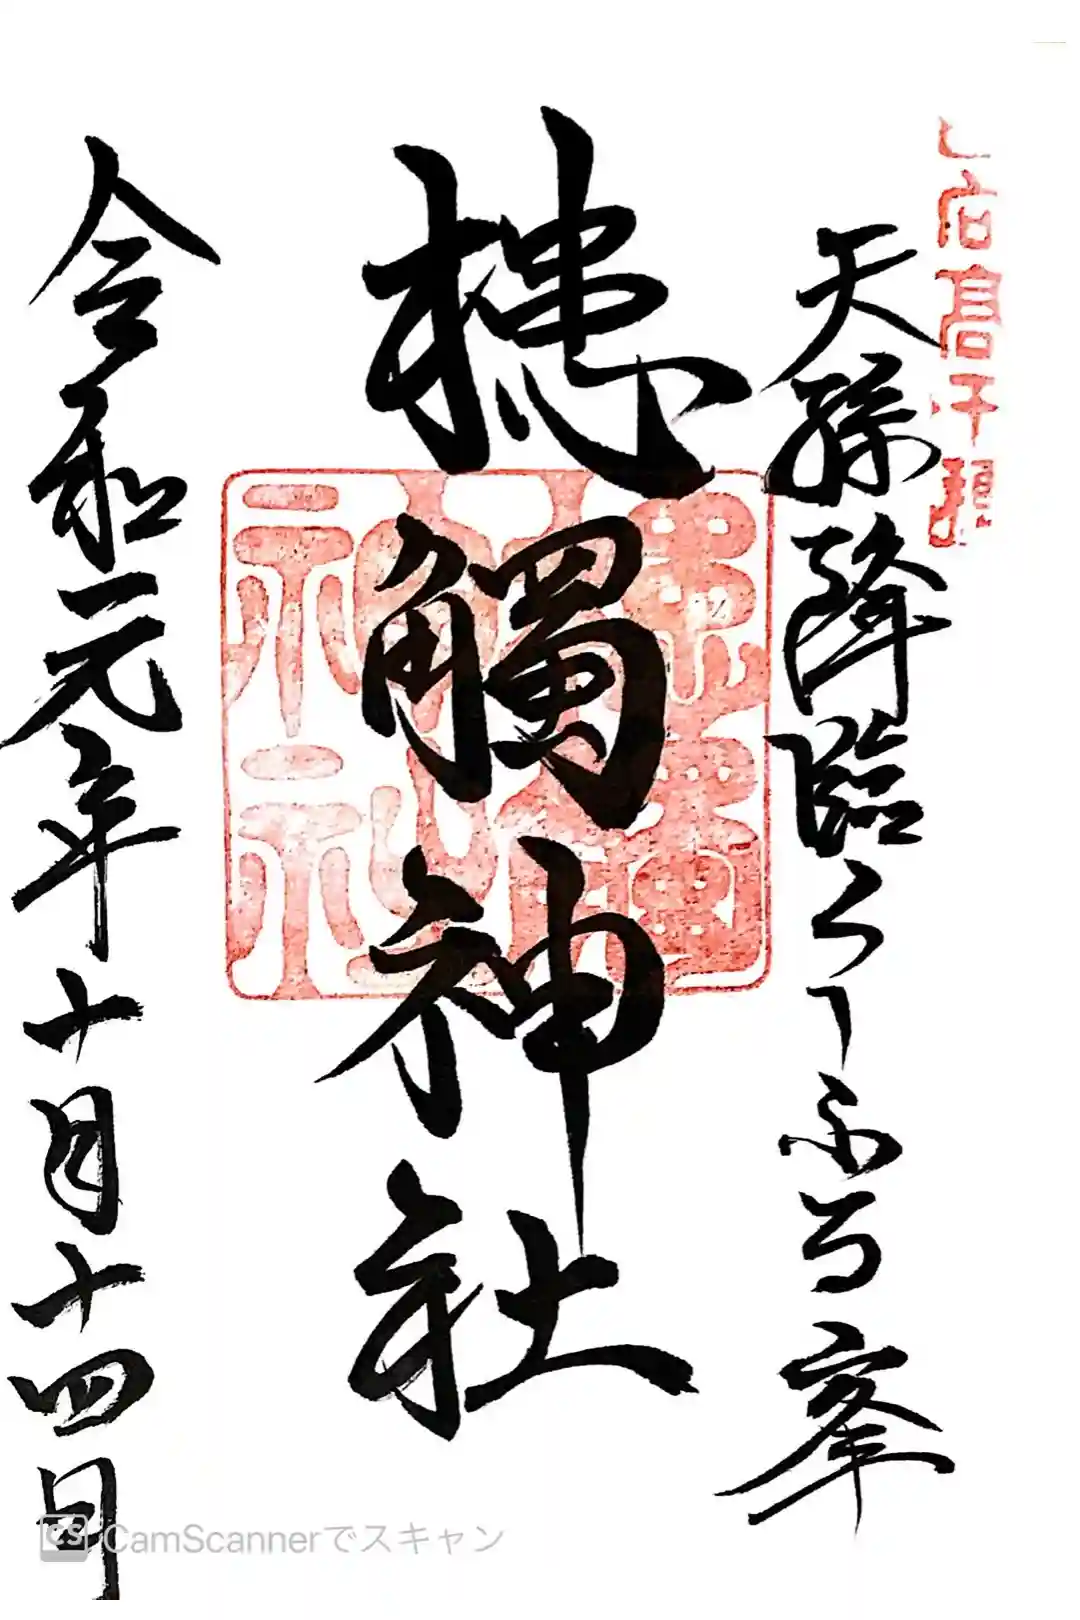 高千穂
天孫降臨くしふる峯
槵觸神社
令和元年十月十四日
CamScannerでスキャン